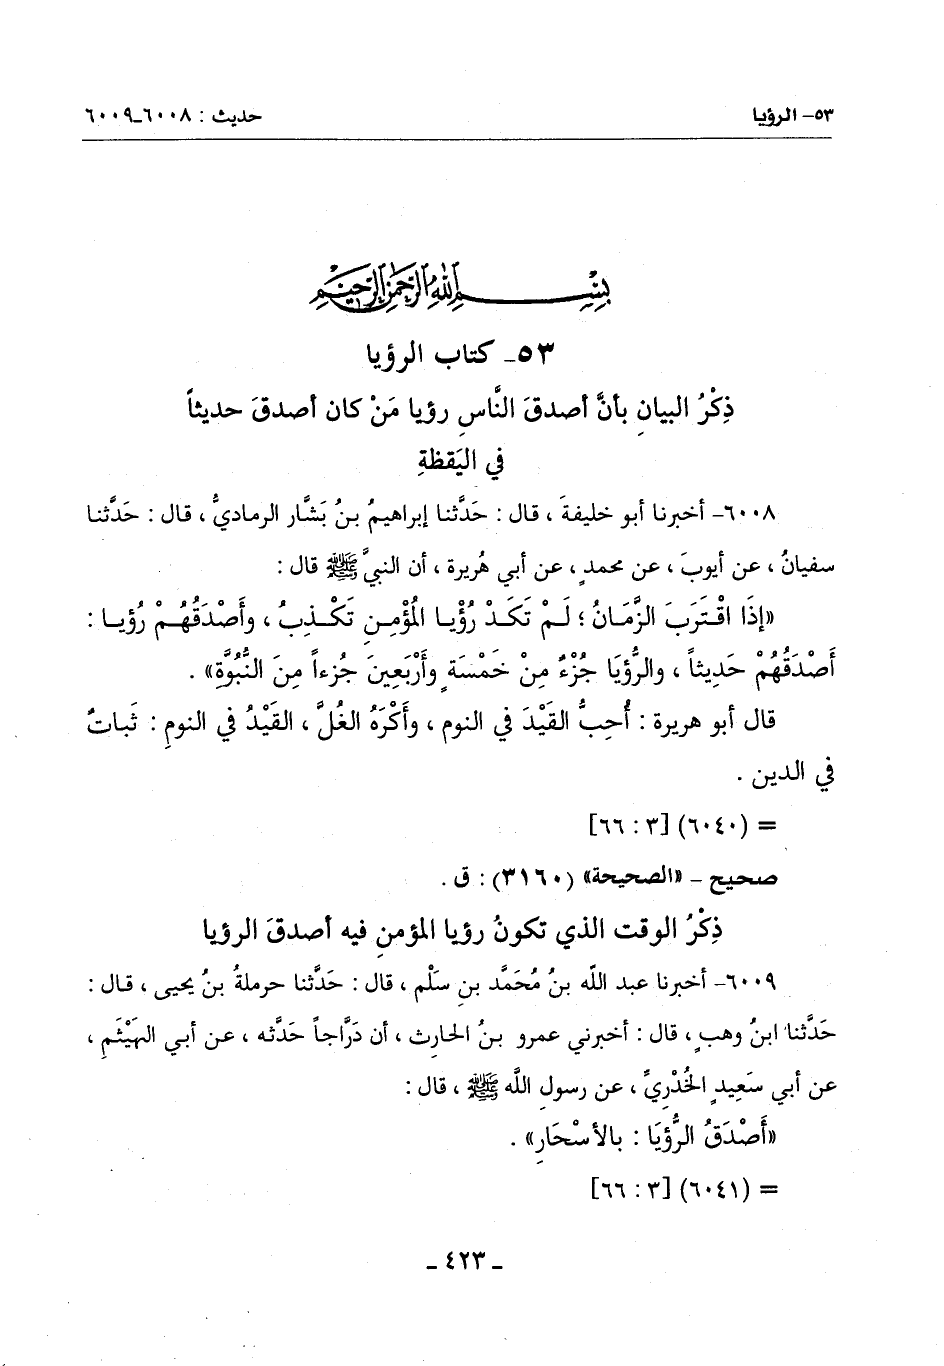 ٥٣- الرؤيا حديث : ٦٠٠٨-٦٠٠٩
بِسْمِ اللهِ الرَّحْمٰنِ الرَّحِيْمِ
٥٣- كتاب الرؤيا
ذِكْرُ البيانِ بأنَّ أصدقَ النَّاسِ رؤيا مَنْ كان أصدقَ حديثاً
في اليَقظةِ
٦٠٠٨- أخبرنا أبو خليفةَ ، قال : حَدَّثنا إبراهيمُ بنُ بَشَّار الرماديُّ ، قال : حَدَّثنا
سفيانُ ، عن أيوبَ ، عن محمدٍ ، عن أبي هُريرة ، أن النبيَّ ﷺ قال :
«إذَا اقْتَرَبَ الزَّمَانُ ؛ لَمْ تَكَدْ رُؤْيا المُؤْمِنِ تَكْذِبُ ، وأَصْدَقُهُمْ رُؤيا :
أَصْدَقُهُمْ حَدِيثاً ، والرُّؤيَا جُزْءٌ مِنْ خَمْسَةٍ وأَرْبَعِينَ جُزءاً مِنَ النُّبُوَّةِ» .
قال أبو هريرة : أُحِبُّ القَيْدَ في النوم ، وأَكْرَهُ الغُلَّ ، القَيْدُ في النومِ : ثَباتٌ
في الدين .
= (٦٠٤٠) [٣ : ٦٦]
صحيح - «الصحيحة» (٣١٦٠) : ق .
ذِكْرُ الوقت الذي تكونُ رؤيا المؤمنِ فيه أصدقَ الرؤيا
٦٠٠٩- أخبرنا عبد اللّه بنُ مُحَمَّد بنِ سَلْم ، قال : حَدَّثنا حرملةُ بنُ يحيى ، قال :
حَدَّثنا ابنُ وهبٍ ، قال : أخبرني عمرو بنُ الحارِث ، أن دَرَّاجاً حَدَّثه ، عن أبي الهَيْثَمِ ،
عن أبي سَعِيدٍ الخُدْريِّ ، عن رسولِ اللَّه ﷺ ، قال :
«أَصْدَقُ الرُّؤيَا : بالأسْحَارِ» .
= (٦٠٤١) [٣ : ٦٦]
- ٤٢٣ -